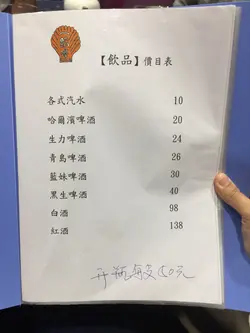 【飲品】價目表
各式汽水 10
哈爾濱啤酒 20
生力啤酒 24
青島啤酒 26
藍妹啤酒 30
黑生啤酒 40
白酒 98
紅酒 138
开瓶每支50元